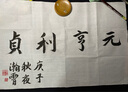 元亨利貞
庚子
秋夜